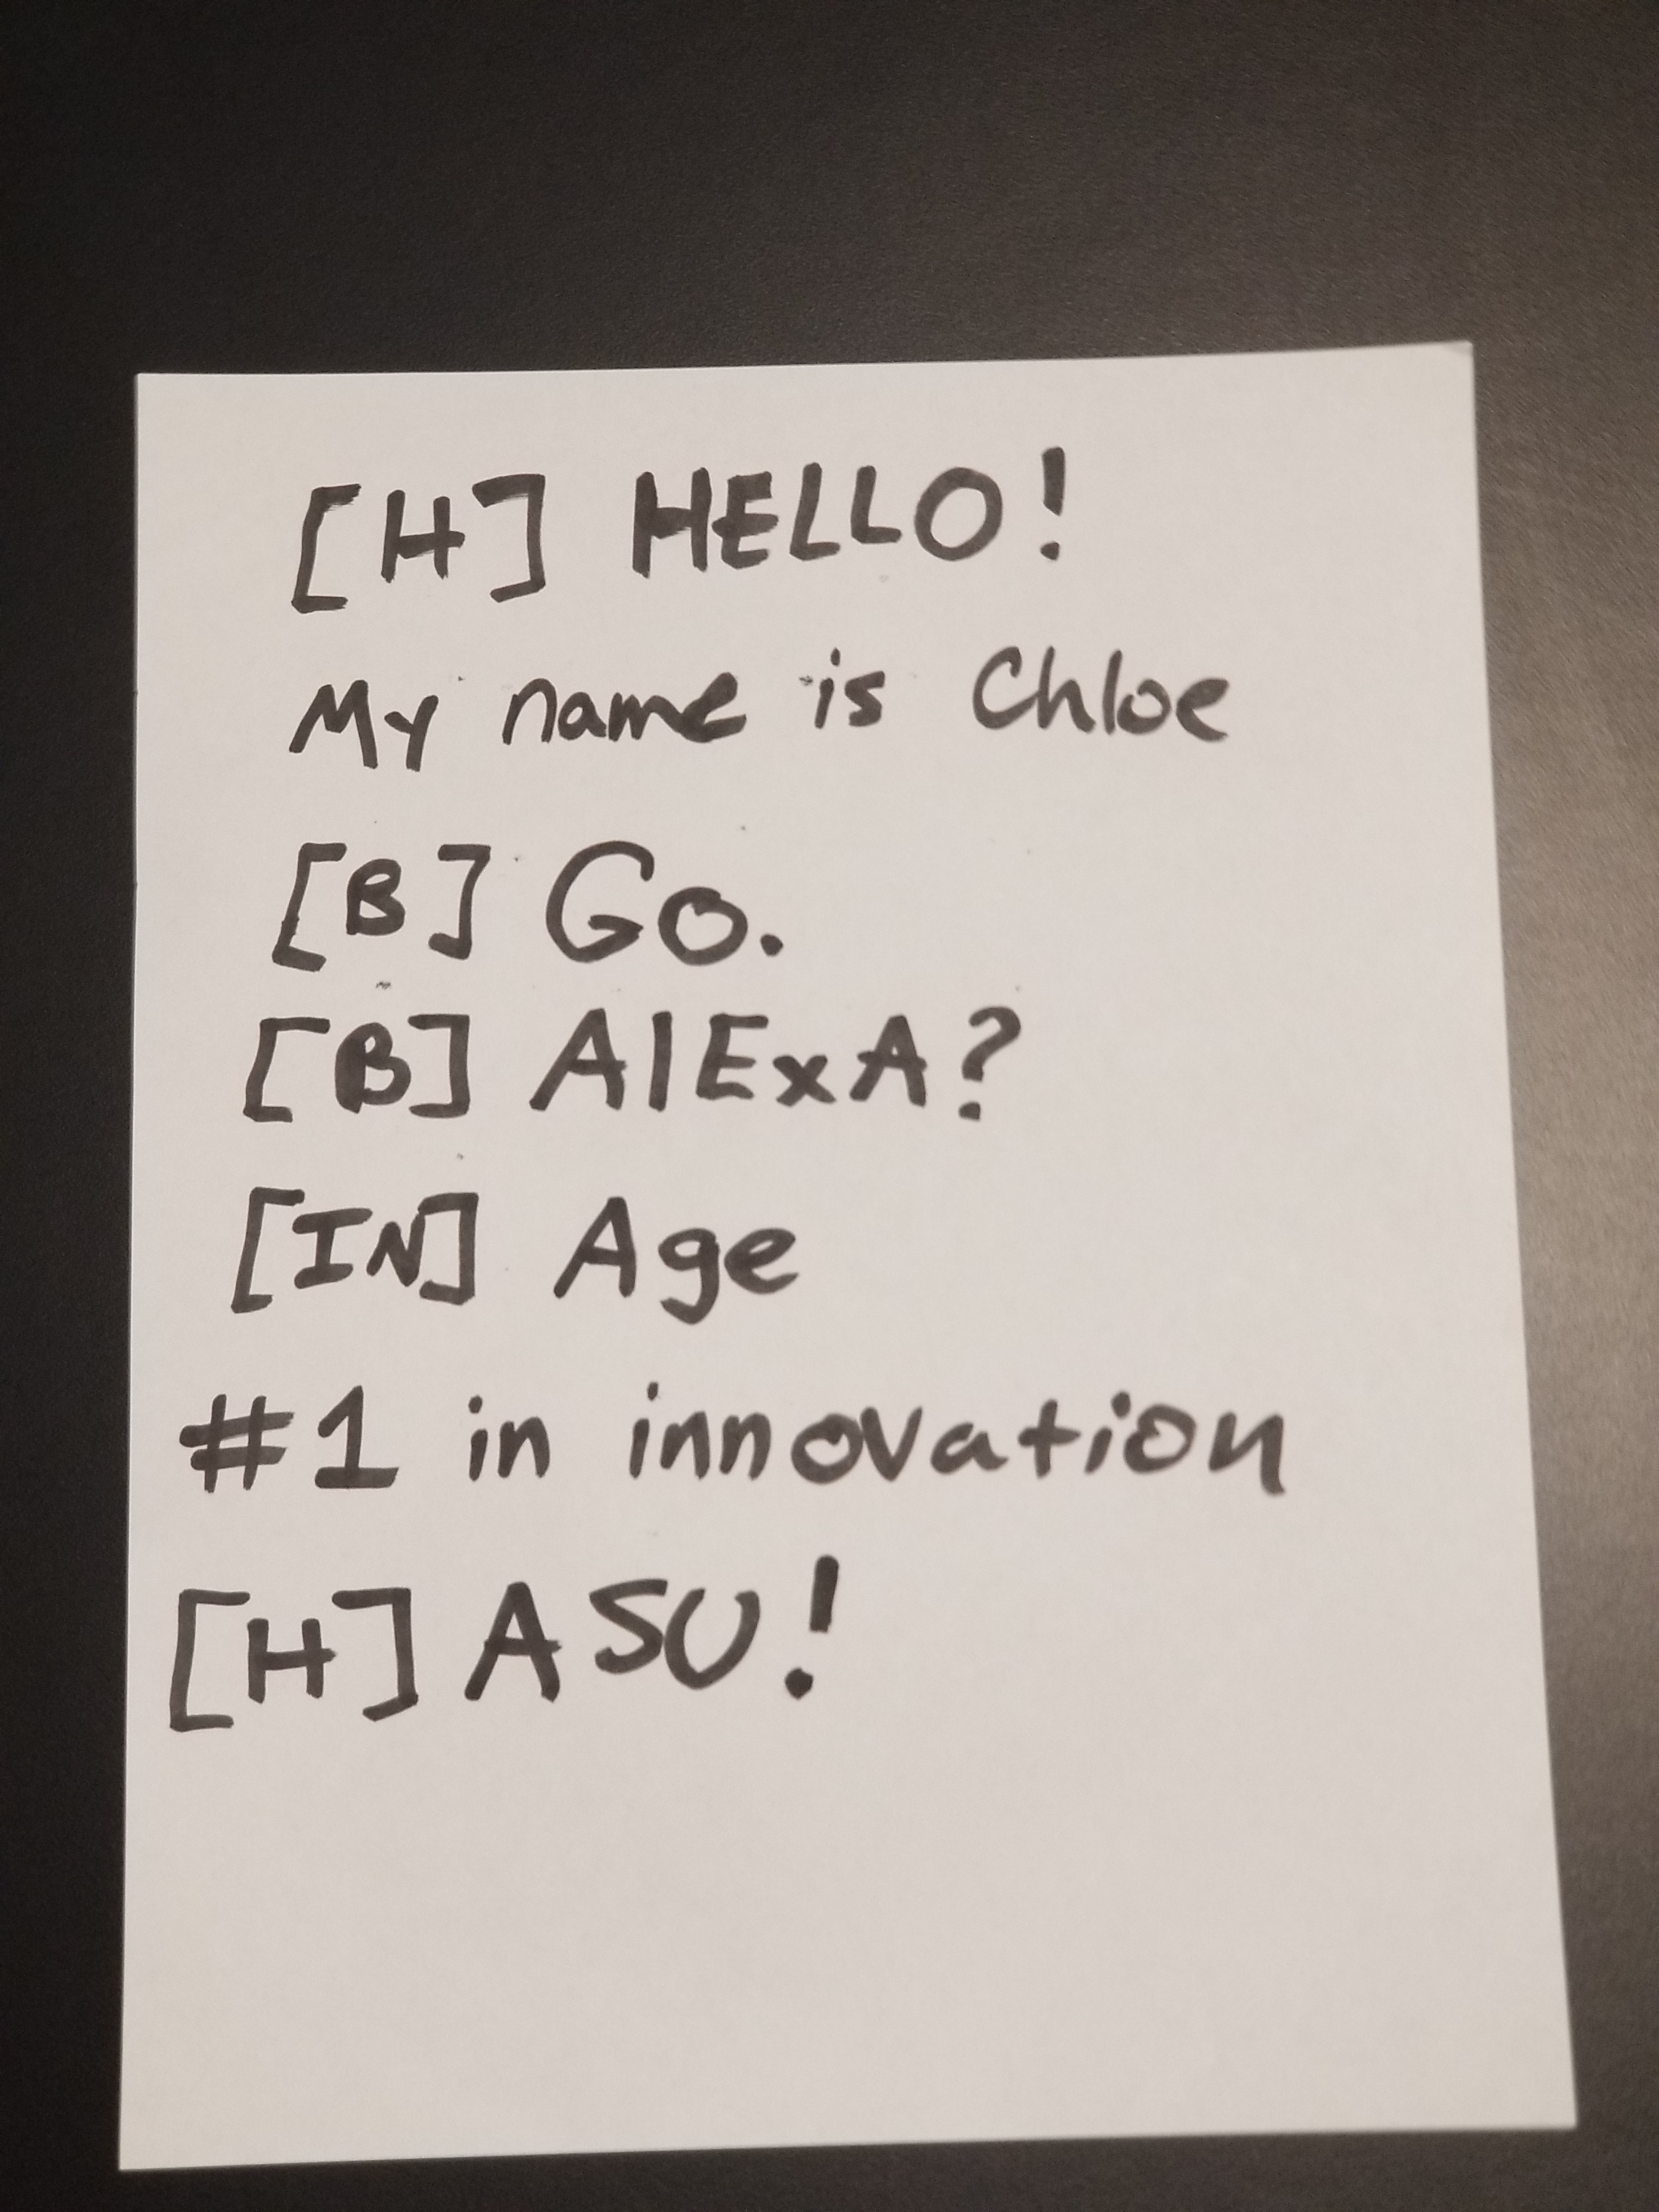 [H] HELLO!
My name is Chloe
[B] Go.
[B] AlExA?
[IN] Age
#1 in innovation
[H] ASU!